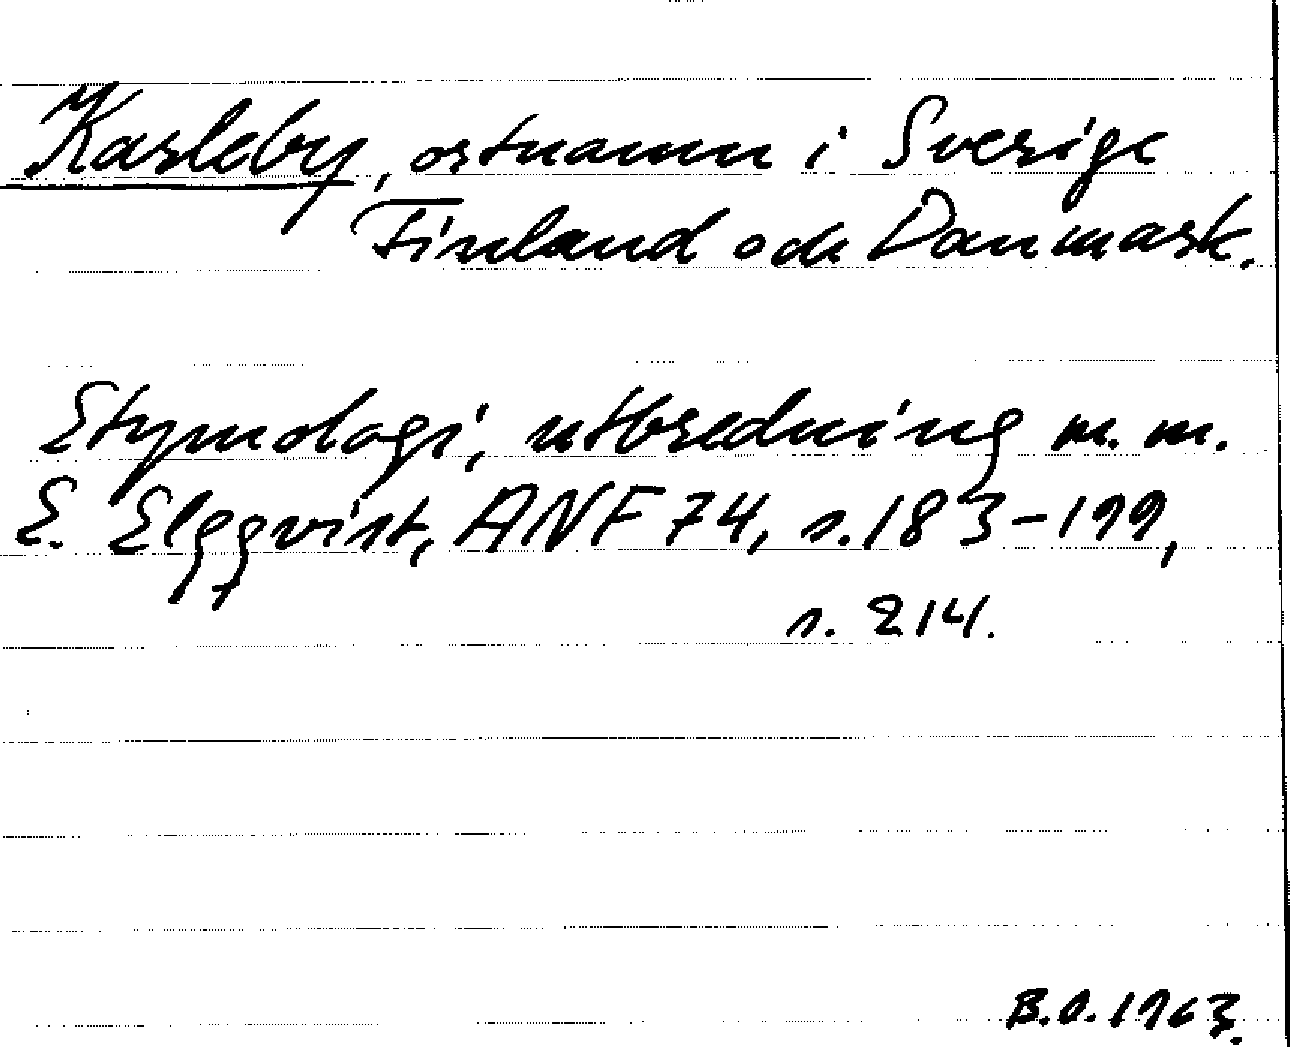 Karleby, ortnamn i Sverige
Finland och Danmark.
Etymologi, utbredning m.m.
E. Elgqvist, ANF 74, s. 183-199,
s. 214.
B.O. 1963.